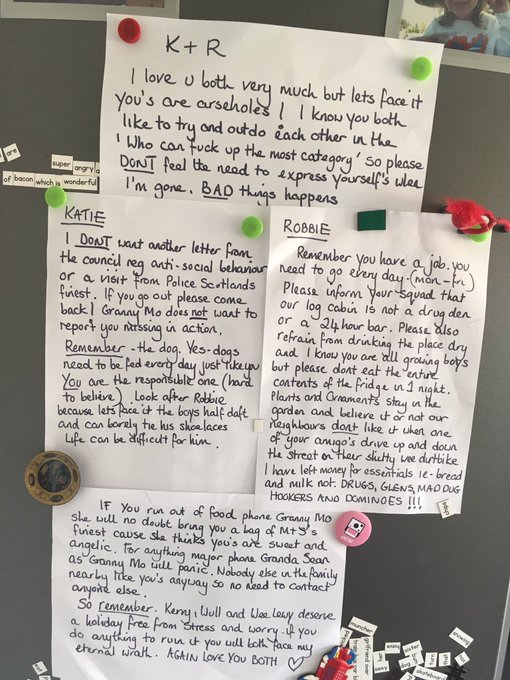 K + R
I love u both very much but lets face it
you's are arseholes! I know you both
like to try and outdo each other in the
'Who can fuck up the most category' so please
DONT feel the need to express yourself's when
I'm gone. BAD things happens
are
super angry a
of bacon which is wonderful
KATIE
I DONT want another letter from
the council reg anti-social behaviour
or a visit from Police Scotlands
finest. If you go out please come
back! Granny Mo does not want to
report you missing in action.
Remember - the dog. Yes - dogs
need to be fed every day just like you
You are the responsible one (hard
to believe). Look after Robbie
because lets face it the boys half daft
and can barely tie his shoelaces
Life can be difficult for him.
ROBBIE
Remember you have a job. You
need to go every day - (mon - fri)
Please inform your squad that
our log cabin is not a drug den
or a 24 hour bar. Please also
refrain from drinking the place dry
and I know you are all growing boys
but please dont eat the entire
contents of the fridge in 1 night.
Plants and Ornaments stay in the
garden and believe it or not our
neighbours dont like it when one
of your amigo's drive up and down
the street on their shitty wee dirtbike
I have left money for essentials ie - bread
and milk not DRUGS, GLENS, MAD DUG
HOOKERS AND DOMINOES !!!
IF you run out of food phone Granny Mo
she will no doubt bring you a bag of M+S's
finest cause she thinks you's are sweet and
angelic. For anything major phone Granda Sean
as Granny Mo will panic. Nobody else in the family
nearby like you's anyway so no need to contact
anyone else.
So remember. Kerry, Wull and Wee Lewy deserve
a holiday free from stress and worry. If you
do anything to ruin it you will both face my
eternal wrath. AGAIN LOVE YOU BOTH
muncher
girlfriend
over
sexy
sister
dog
skateboard